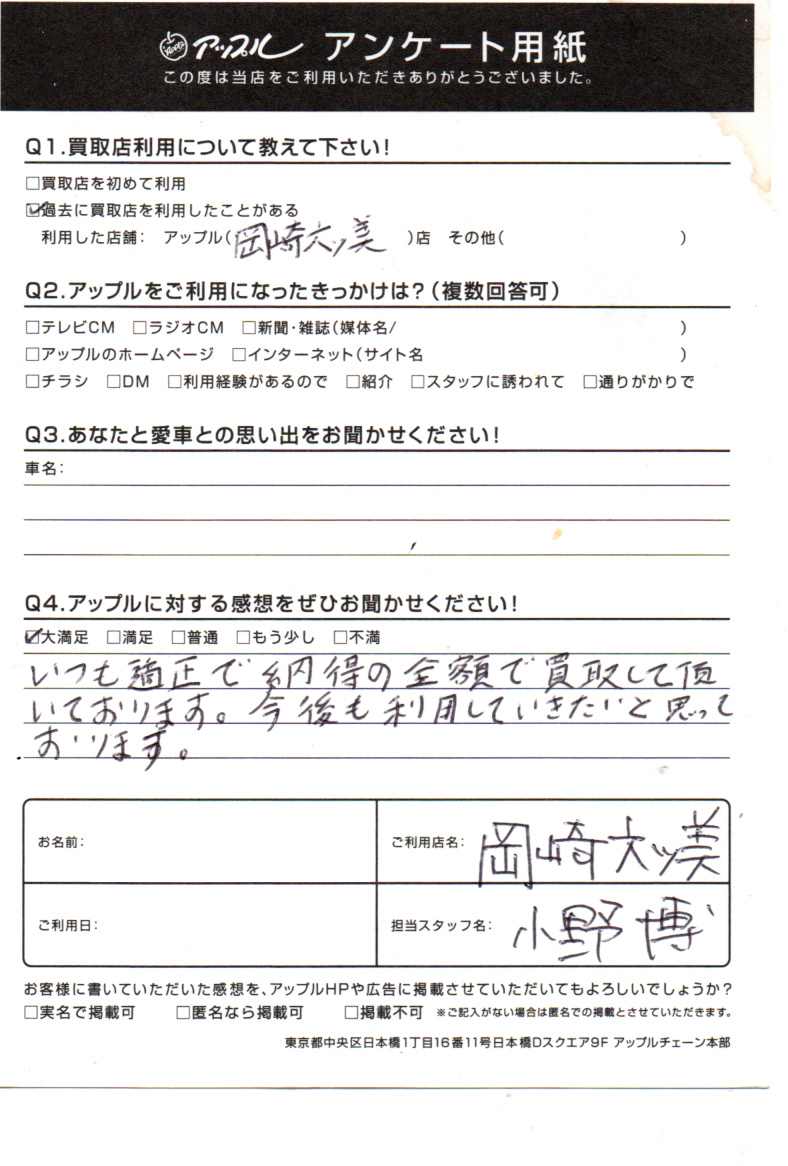 アップル アンケート用紙
この度は当店をご利用いただきありがとうございました。
Q1.買取店利用について教えて下さい!
□買取店を初めて利用
☑過去に買取店を利用したことがある
利用した店舗: アップル(岡崎大ツ美 )店 その他( )
Q2.アップルをご利用になったきっかけは?(複数回答可)
□テレビCM □ラジオCM □新聞・雑誌(媒体名/ )
□アップルのホームページ □インターネット(サイト名 )
□チラシ □DM □利用経験があるので □紹介 □スタッフに誘われて □通りがかりで
Q3.あなたと愛車との思い出をお聞かせください!
車名:
Q4.アップルに対する感想をぜひお聞かせください!
☑大満足 □満足 □普通 □もう少し □不満
いつも適正で納得の金額で買取して頂
いております。今後も利用していきたいと思って
おります。
お名前:
ご利用店名: 岡崎大ツ美
ご利用日:
担当スタッフ名: 小野 博
お客様に書いていただいた感想を、アップルHPや広告に掲載させていただいてもよろしいでしょうか?
□実名で掲載可 □匿名なら掲載可 □掲載不可 ※ご記入がない場合は匿名での掲載とさせていただきます。
東京都中央区日本橋1丁目16番11号日本橋Dスクエア9F アップルチェーン本部